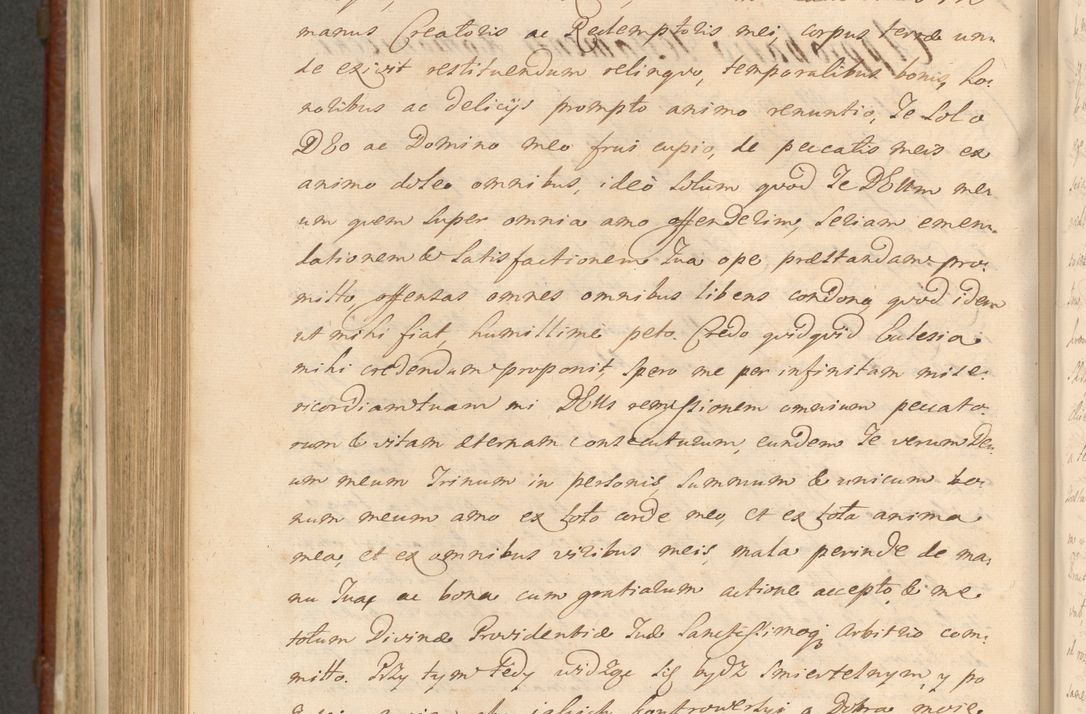 manus Creatoris ac Redemptoris mei, corpus terræ un:
de exivit restituendum relinqvo, temporalibus bonis, ho:
noribus ac delicijs prompto animo renuntio, Te Solo
DEo ac Domino meo frui cupio, de peccatis meis ex
animo doleo omnibus, ideò Solum qvod Te DEUm me:
um qvem Super omnia amo offenderim, Seriam emen:
dationem & Satisfactionem Tua ope præstandam pro:
mitto, offensas omnes omnibus libens condono, qvod idem
ut mihi fiat, humillimè peto. Credo qvidqvid Eclesia
mihi credendum proponit Spero me per infinitam mise:
ricordiam tuam mi DEUs remissionem omnium peccato:
rum & vitam æternam consecuturum, eundem Te verum De:
um meum Trinum in personis, Summum & unicum bo:
num meum amo ex toto corde meo, et ex tota anima
mea, et ex omnibus viribus meis, mala perinde de ma:
nu Tua, ac bona cum gratiarum actione accepto, & me
totum Divinæ Providentiæ Tuæ Sanctissimoq; arbitrio com:
mitto. Przy tym tedy widzę się bydz smiertelnym, y po
kontrowersyi a Dobra moie